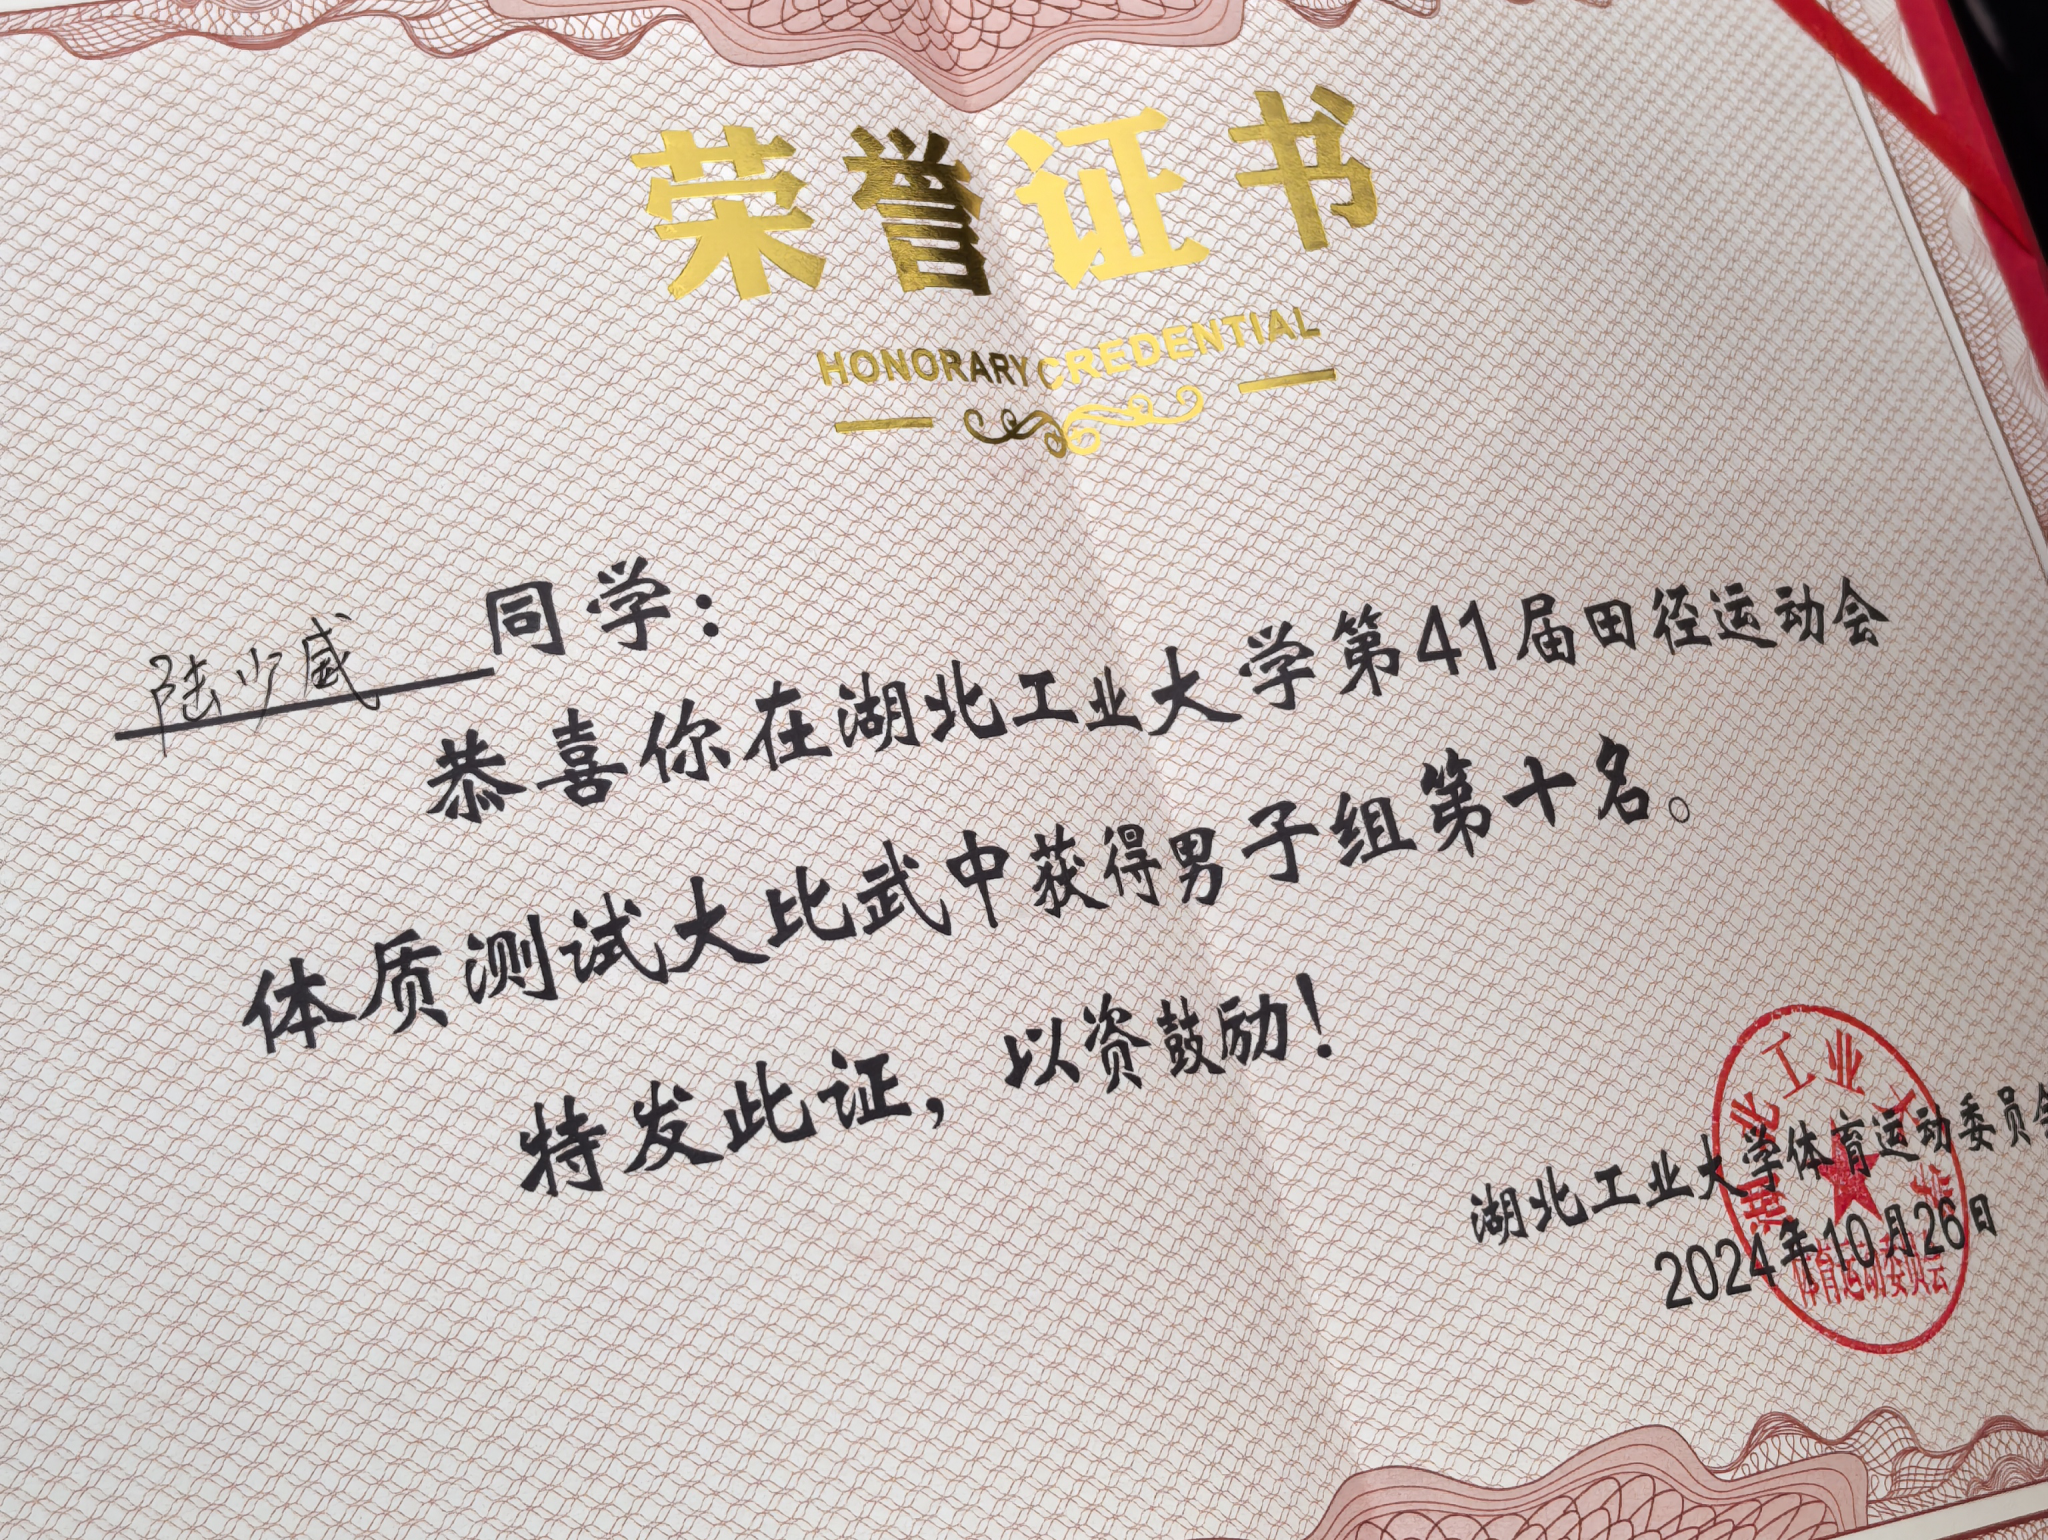 荣誉证书
HONORARY CREDENTIAL
陆少威同学：
恭喜你在湖北工业大学第41届田径运动会
体质测试大比武中获得男子组第十名。
特发此证，以资鼓励！
湖北工业大学体育运动委员会
2024年10月26日
湖北工业大学
体育运动委员会